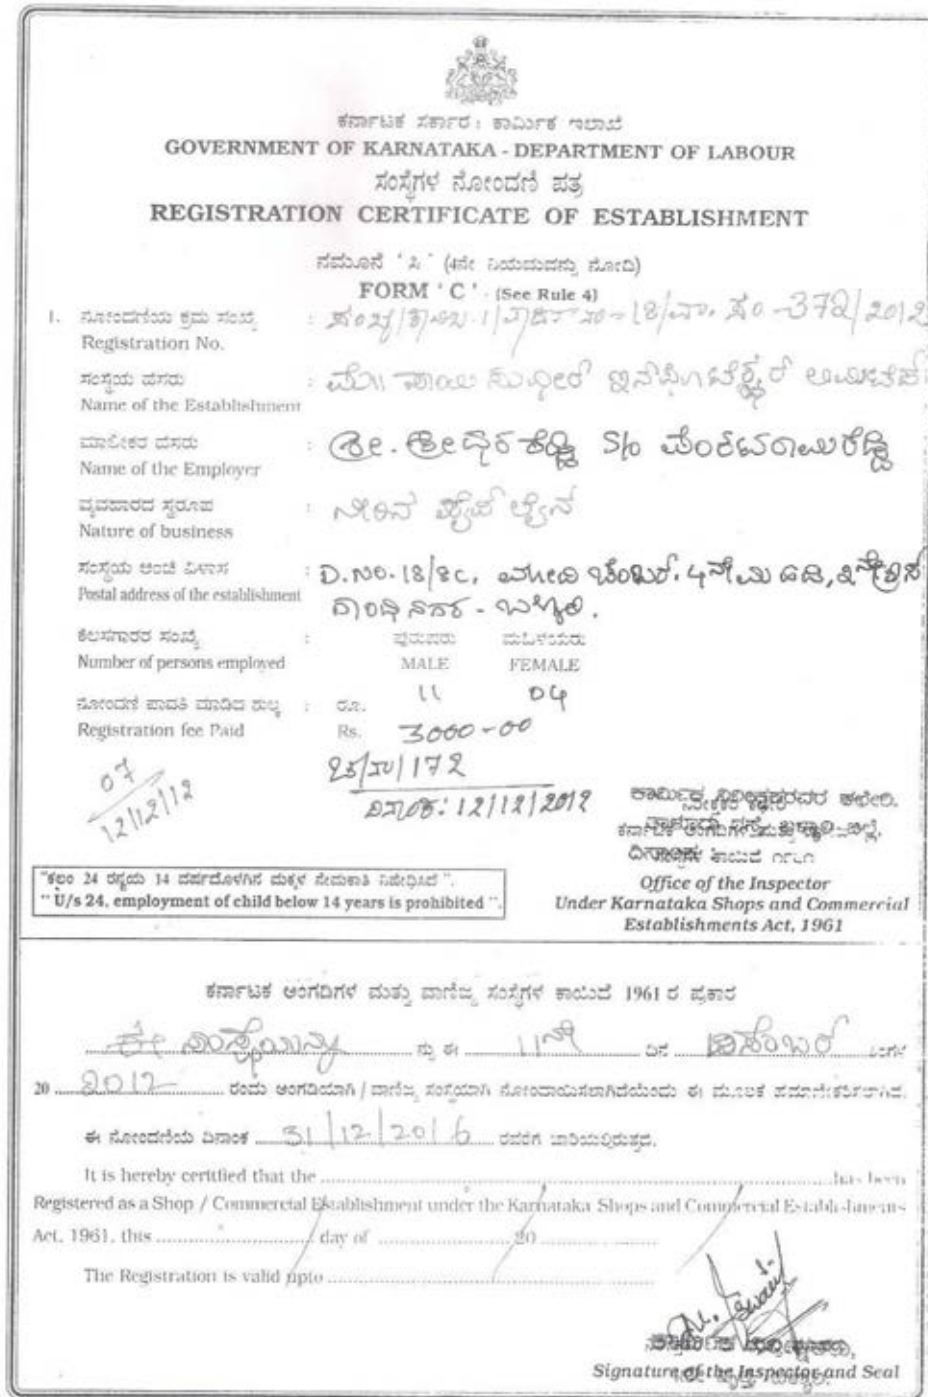 ಕರ್ನಾಟಕ ಸರ್ಕಾರ : ಕಾರ್ಮಿಕ ಇಲಾಖೆ
GOVERNMENT OF KARNATAKA - DEPARTMENT OF LABOUR
ಸಂಸ್ಥೆಗಳ ನೋಂದಣಿ ಪತ್ರ
REGISTRATION CERTIFICATE OF ESTABLISHMENT
ನಮೂನೆ ' ಸಿ ' (4ನೇ ನಿಯಮವನ್ನು ನೋಡಿ)
FORM ' C ' - (See Rule 4)
1. ನೋಂದಣಿಯ ಕ್ರಮ ಸಂಖ್ಯೆ : 18/ವಾ. ಸಂ -372/2012
Registration No.
ಸಂಸ್ಥೆಯ ಹೆಸರು :
Name of the Establishment
ಮಾಲೀಕರ ಹೆಸರು : ಶ್ರೀ. ಶ್ರೀಧರ ರೆಡ್ಡಿ S/o ವೆಂಕಟರಾಮರೆಡ್ಡಿ
Name of the Employer
ವ್ಯವಹಾರದ ಸ್ವರೂಪ : ನೀರಿನ ಪೈಪ್ ಲೈನ್
Nature of business
ಸಂಸ್ಥೆಯ ಅಂಚೆ ವಿಳಾಸ : D.NO. 18/8C, 4ನೇ
Postal address of the establishment ಗಾಂಧಿನಗರ - ಬಳ್ಳಾರಿ.
ಕೆಲಸಗಾರರ ಸಂಖ್ಯೆ : ಪುರುಷರು ಮಹಿಳೆಯರು
Number of persons employed MALE FEMALE
11 04
ನೋಂದಣಿ ಪಾವತಿ ಮಾಡಿದ ಶುಲ್ಕ : ರೂ.
Registration fee Paid Rs. 3000-00
172
07
12/12/12
ದಿನಾಂಕ: 12/12/2012
"ಕಲಂ 24 ರನ್ವಯ 14 ವರ್ಷದೊಳಗಿನ ಮಕ್ಕಳ ನೇಮಕಾತಿ ನಿಷೇಧಿಸಿದೆ ".
" U/s 24, employment of child below 14 years is prohibited ".
Office of the Inspector
Under Karnataka Shops and Commercial
Establishments Act, 1961
ಕರ್ನಾಟಕ ಅಂಗಡಿಗಳ ಮತ್ತು ವಾಣಿಜ್ಯ ಸಂಸ್ಥೆಗಳ ಕಾಯಿದೆ 1961 ರ ಪ್ರಕಾರ
ಈ ಸಂಸ್ಥೆಯನ್ನು ನ್ನು ಈ 11ನೇ ದಿನ ಡಿಸೆಂಬರ್ ತಿಂಗಳ
20 2012 ರಂದು ಅಂಗಡಿಯಾಗಿ / ವಾಣಿಜ್ಯ ಸಂಸ್ಥೆಯಾಗಿ ನೋಂದಾಯಿಸಲಾಗಿದೆಯೆಂದು ಈ ಮೂಲಕ ಪ್ರಮಾಣೀಕರಿಸಲಾಗಿದೆ.
ಈ ನೋಂದಣಿಯ ದಿನಾಂಕ 31/12/2016 ರವರೆಗೆ ಜಾರಿಯಲ್ಲಿರುತ್ತದೆ.
It is hereby certified that the has been
Registered as a Shop / Commercial Establishment under the Karnataka Shops and Commercial Establishments
Act. 1961. this day of 20
The Registration is valid upto
Signature of the Inspector and Seal